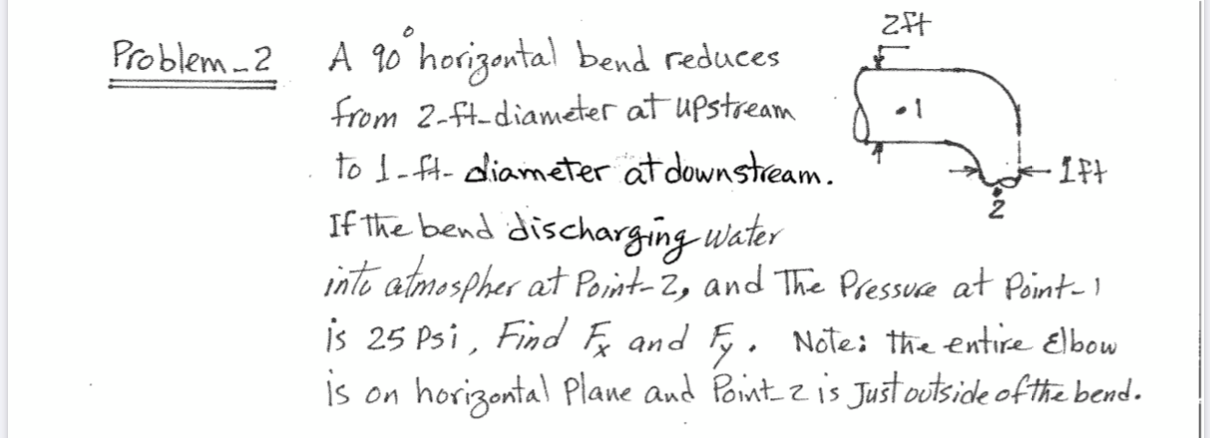 2ft
Problem-2 A 90° horizontal bend reduces
from 2-ft-diameter at upstream
•1
to 1-ft- diameter at downstream.
1ft
2
If the bend discharging water
into atmospher at Point-2, and The Pressure at Point-1
is 25 Psi, Find Fx and Fy. Note: the entire Elbow
is on horizontal Plane and Point-2 is Just outside of the bend.